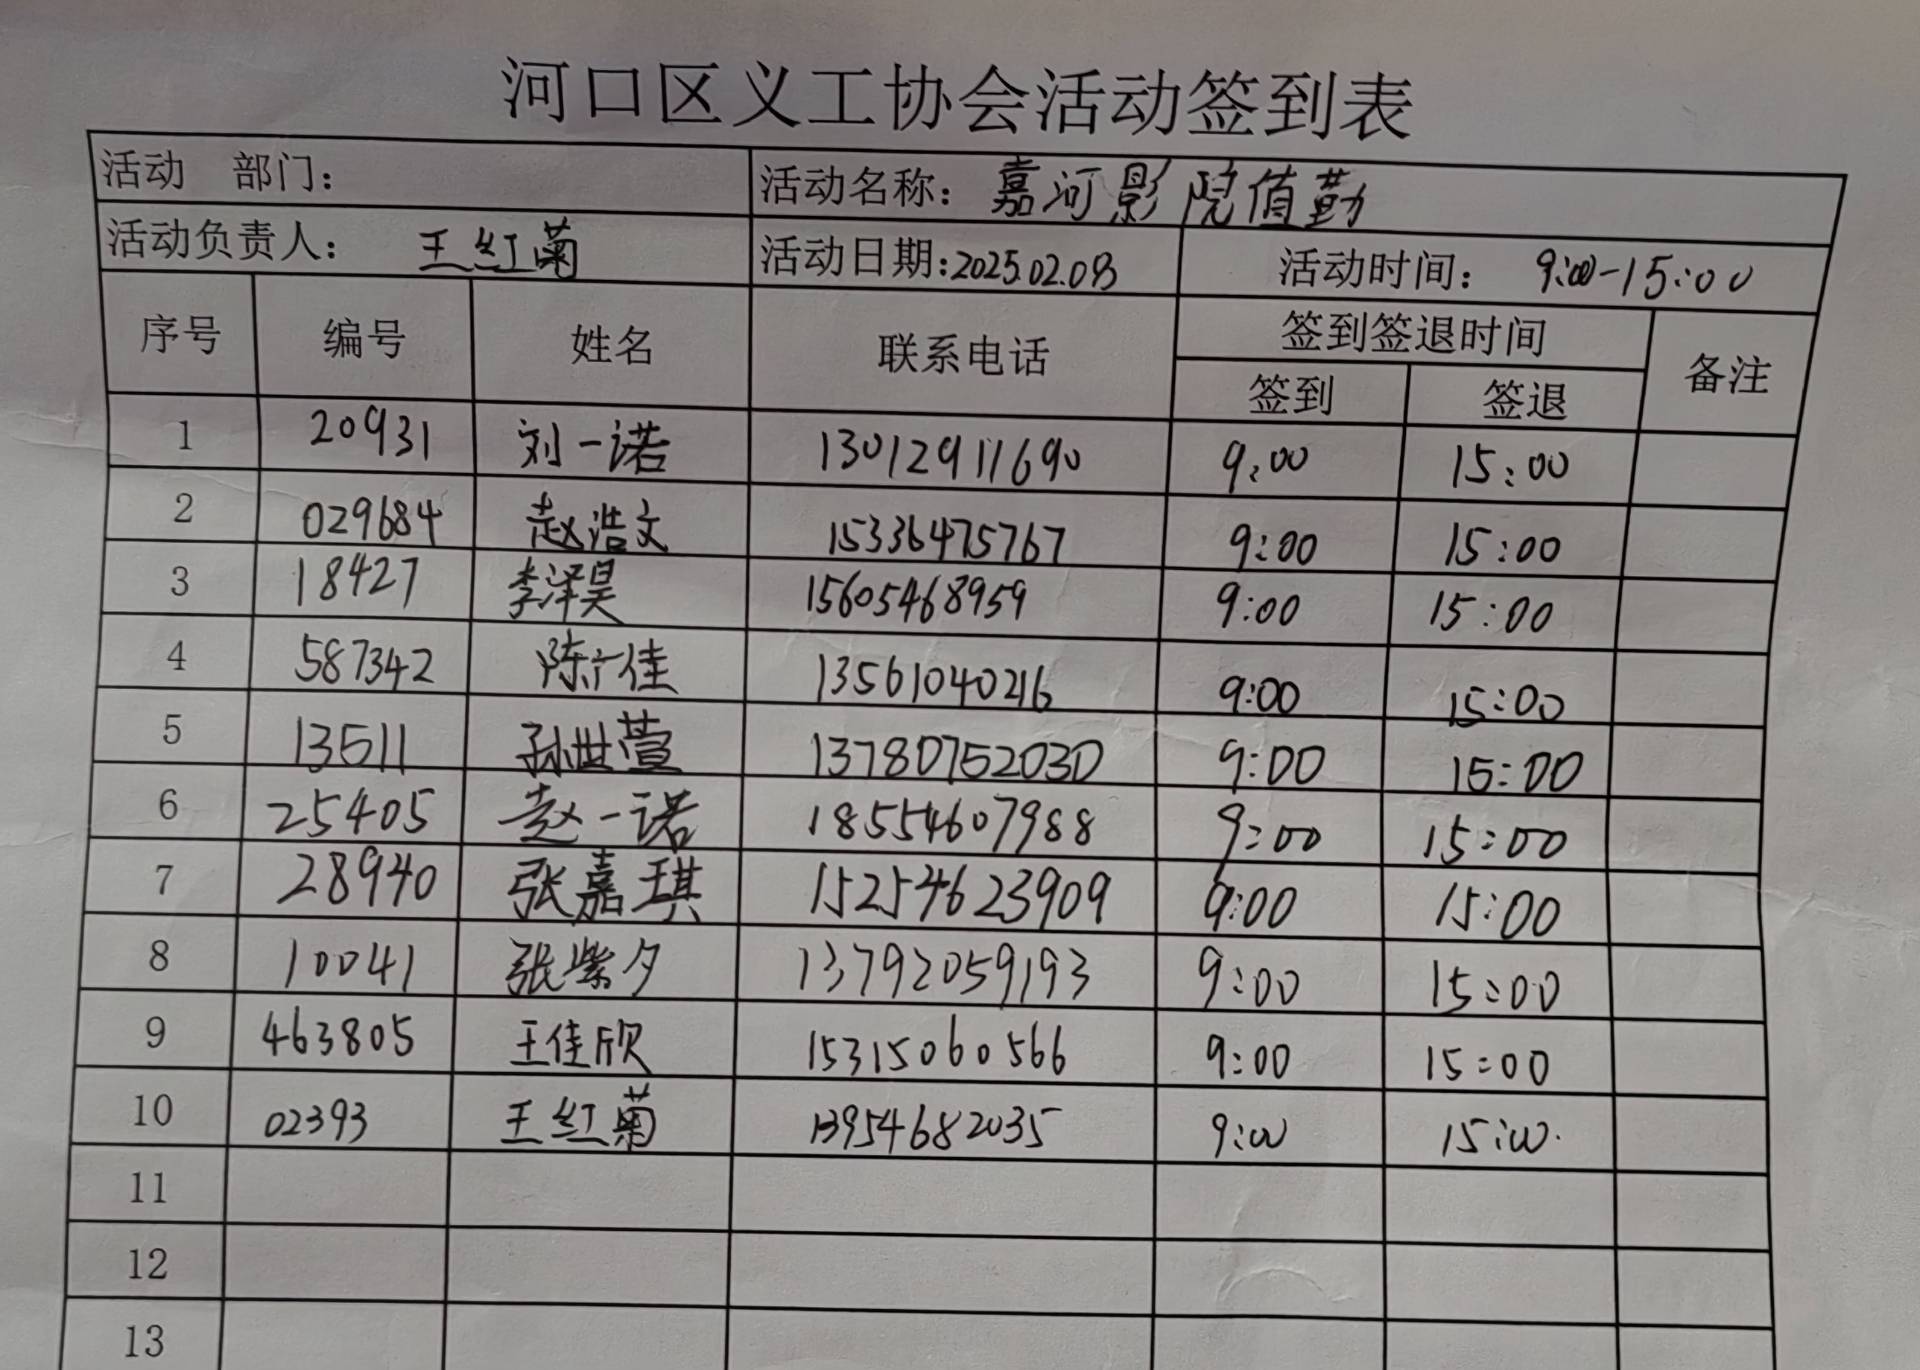 河口区义工协会活动签到表
活动 部门: 活动名称: 嘉河影院值勤
活动负责人: 王红菊 活动日期:2025.02.08 活动时间: 9:00-15:00
序号 编号 姓名 联系电话 签到签退时间 备注
签到 签退
1 20931 刘一诺 13012911690 9:00 15:00
2 029684 赵浩文 15336475767 9:00 15:00
3 18427 李泽昊 15605468959 9:00 15:00
4 587342 陈广佳 13561040216 9:00 15:00
5 13511 孙世萱 13780752030 9:00 15:00
6 25405 赵一诺 18554607988 9:00 15:00
7 28940 张嘉琪 15254623909 9:00 15:00
8 10041 张紫夕 13792059193 9:00 15:00
9 463805 王佳欣 15315060566 9:00 15:00
10 02393 王红菊 13954682035 9:00 15:00.
11
12
13